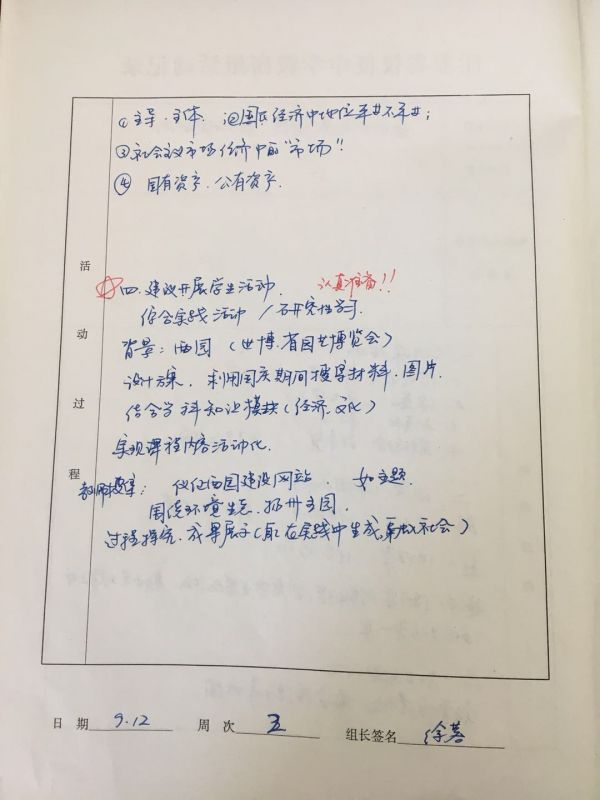 ①主导·主体. ②国民经济中地位
③社会主义市场经济中的“市场”!
④ 国有资产. 公有资产.
活动过程
四. 建议开展学生活动. 认真准备!!
综合实践活动 / 研究性学习.
背景: 两园 (世博. 省园艺博览会)
设计方案. 利用国庆期间搜集材料. 图片.
结合学科知识模块(经济. 文化)
实现课程内容活动化.
教师搜集: 仪征西园建设网站. 如主题.
围绕环境生态. 扬州
过程探究. 成果展示(在实践中生成, 社会)
日 期 9.12 周 次 五 组长签名 徐